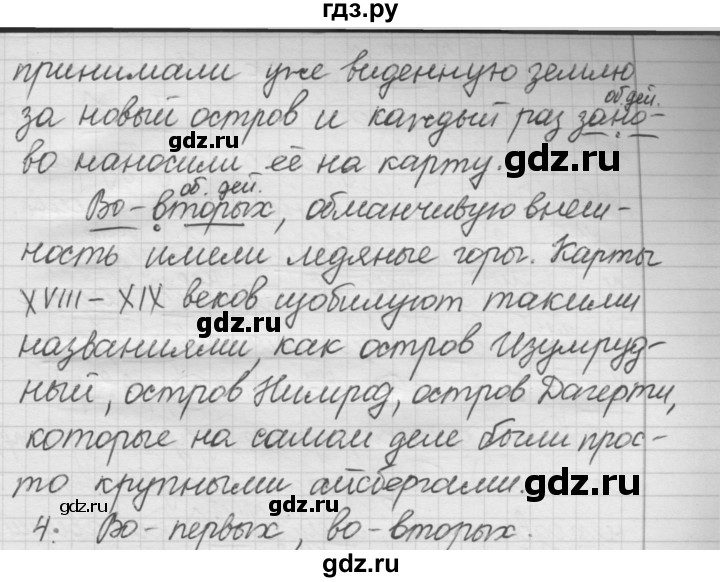 гдз.ру
принимали уже виденную землю
об. дей.
за новый остров и каждый раз зано-
во наносили её на карту.
об. дей.
Во-вторых, обманчивую внеш-
ность имели ледяные горы. Карты
XVIII-XIX веков изобилуют такими
названиями, как остров Изумруд-
ный, остров Нимрод, остров Дагерти,
которые на самом деле были прос-
то крупными айсбергами.
4: Во-первых, во-вторых.
gdz.ru
gdz.ru
gdz.ru
gdz.ru
gdz.ru
gdz.ru
gdz.ru
gdz.ru
gdz.ru